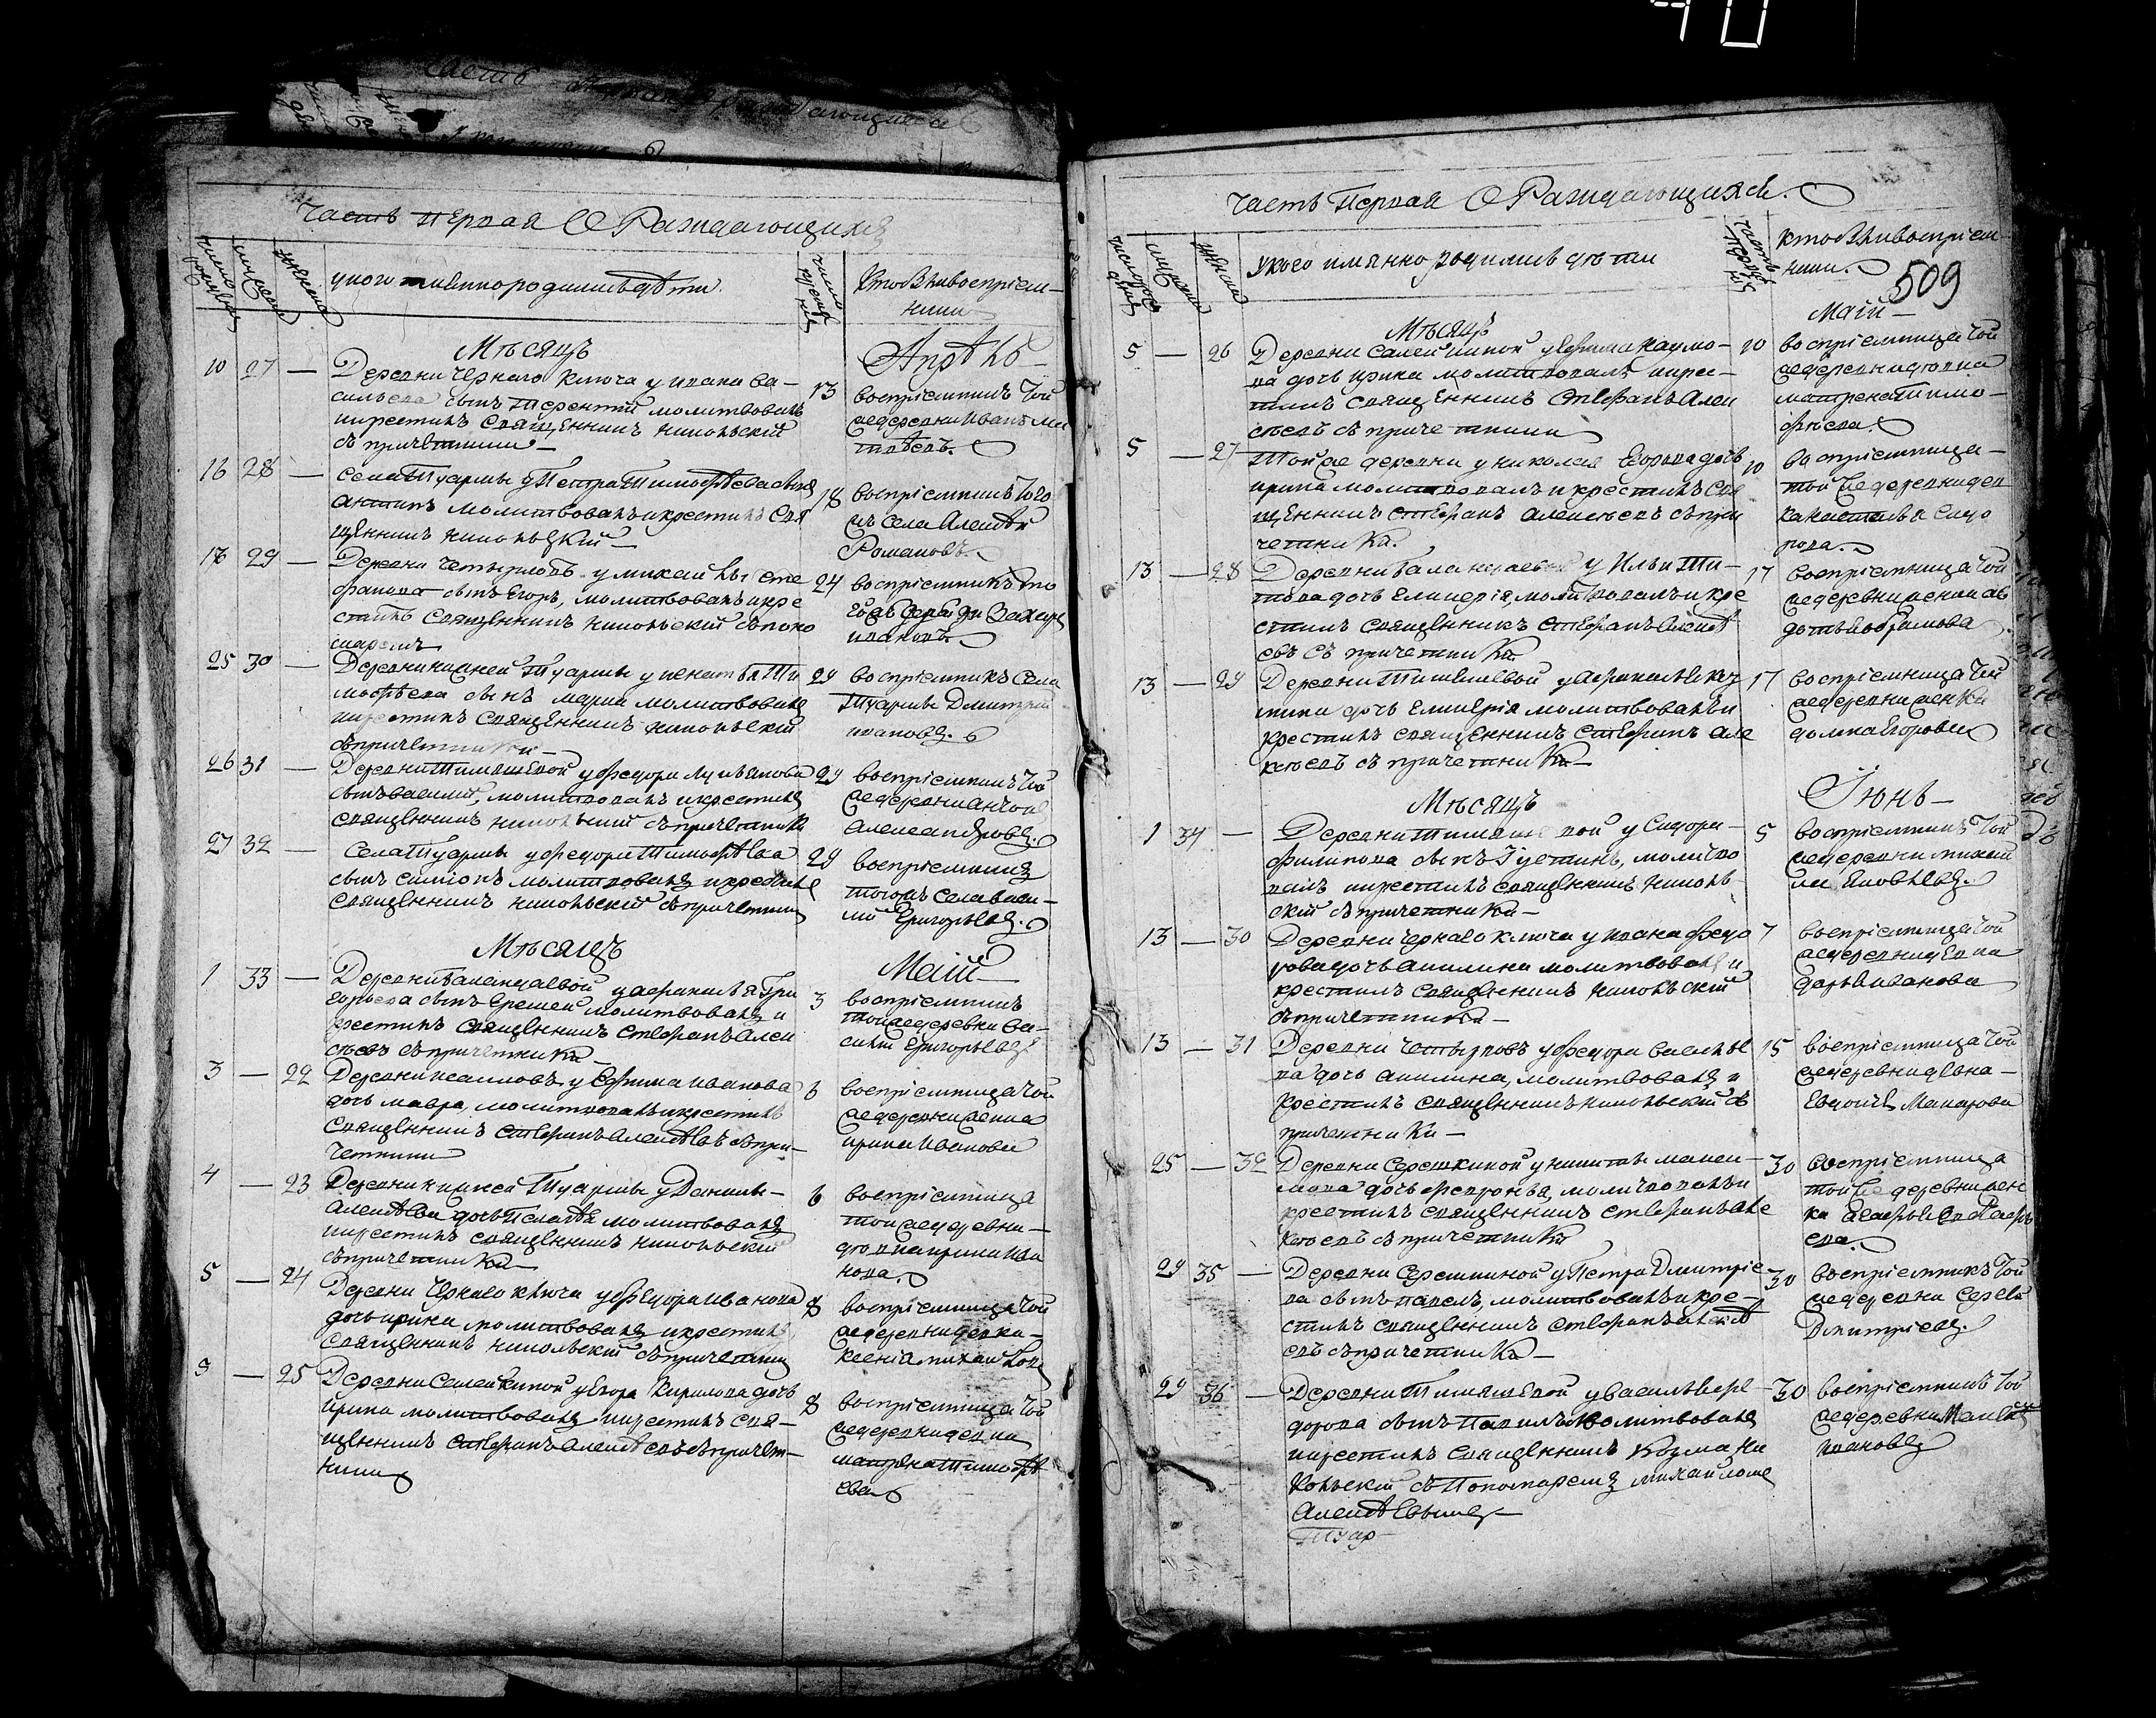 Часть первая О Раждающихся
число рожден
мужеска
женска
у кого имянно родились дѣти.
число крещения
Кто были восприем-
ники
Мѣсяцъ
Апрѣль
10 27 — Деревни Чернаго Ключа у ивана ва-
сильева сынъ Терентий молитвовалъ
икрестилъ священникъ никольский
съ причетники —
13 восприемникъ той
же деревни Иванъ Ма
твѣевъ.
16 28 — села Туармы у Петра Тимофѣева сынъ
антипъ молитвовалъ и крестилъ свя
щенникъ никольский —
18 восприемникъ того
жъ села Алексѣй
Романовъ.
17 29 — Деревни Четырловъ у михайлы Сте
фанова сынъ Егоръ, молитвовалъ и кре
стилъ священникъ никольский съ поно
маремъ
24 восприемникъ то
й же деревни Захаръ
ивановъ.
25 30 — Деревни нижней Туармы у игнатья Ти
мофѣева сынъ марка молитвовалъ
икрестилъ священникъ никольский
съ причетники —
29 восприемникъ села
Туармы Дмитрий
ивановъ.
26 31 — Деревни Тимяшевой у федора лукьянова
сынъ василий, молитвовалъ и крестилъ
священникъ никольский съ причетники
29 восприемникъ той
же деревни антонъ
александровъ.
27 32 — Села Туармы у федора Тимофѣева
сынъ симионъ молитвовалъ и крестилъ
священникъ никольский съ причетники
29 восприемникъ
тогожъ села васи-
лий Григорьевъ.
Мѣсяцъ
Маій
1 33 — Деревни Баландаевой у афанасья Гри
горьева сынъ Еремей молитвовалъ и
крестилъ священникъ стефанъ Алек
сѣевъ съ причетники
3 восприемникъ
той же деревни ва-
силий Григорьевъ
3 — 22 Деревни исаковъ у Ефима иванова
дочь мавра, молитвовалъ и крестилъ
священникъ стефанъ алексѣевъ съ при-
четники
6 восприемница той
же деревни женка
ирина Иванова
4 — 23 Деревни нижней Туармы у Данилы
алексѣева дочь Пелагѣя молитвовалъ
икрестилъ священникъ никольский
съ причетники —
6 восприемница
той же деревни
дѣвка ирина ива
нова.
5 — 24 Деревни Чернаго ключа у федора иванова
дочь ирина молитвовалъ и крестилъ
священникъ никольский съ причетники
8 восприемница той
же деревни девка
ксения михайлова
5 — 25 Деревни Семейкиной у Егора Кирилова дочь
ирина молитвовалъ икрестилъ свя-
щенникъ стефанъ алексѣевъ съ причет-
ники
8 восприемница той
же деревни девка
матрена тимофѣ
ева
Часть Первая О Раждающихся.
число рождения
мужеска
женска
У кого имянно родились дѣти
кто были восприем
ники.
509
Мѣсяцъ
Маій —
5 — 26 Деревни Семейкиной у Ефима наумо-
ва дочь ирина молитвовалъ икре-
стилъ священникъ Стефанъ Алек
сѣевъ съ причетники
10 восприемница той
же деревни девка
матрена Тимо-
фѣева.
5 — 27 Той же деревни у николая Егорова дочь
ирина молитвовалъ и крестилъ свя
щенникъ стефанъ алексѣевъ съ при
четники.
10 восприемница
той же деревни дев
ка настасья Сидо
рова.
13 — 28 Деревни Баландаевой у Ильи Ти-
това дочь Гликерія, молитвовалъ и кре
стилъ священникъ стефанъ Алексѣ
евъ съ причетники
17 восприемница той
же деревни женка ав
дотья ефимова
13 — 29 Деревни Тимяшевой у афанасья куз
мина дочь Гликерія молитвовалъ и
крестилъ священникъ стефанъ але
ксѣевъ съ причетники —
17 восприемница той
же деревни женка
домна Егорова
Мѣсяцъ
Іюнь —
1 34 — Деревни Тимяшевой у Сидора
филипова сынъ Іустинъ, молитво
валъ икрестилъ священникъ николь-
ский съ причетники —
5 восприемникъ той
же деревни михай
ла Яковлевъ.
13 — 30 Деревни Чернаго ключа у ивана федо
рова дочь акилина молитвовалъ и
крестилъ священникъ никольский
съ причетники —
7 восприемница той
же деревни девка
дарья иванова
13 — 31 Деревни Четырловъ у федора василье
ва дочь акилина, молитвовалъ и
крестилъ священникъ никольский съ
причетники —
15 восприемница той
же деревни девка
Евдокия Макарова
25 — 32 Деревни Серешкиной у никиты макси-
мова дочь феврония, молитвовалъ и
крестилъ священникъ стефанъ але
ксѣевъ съ причетники
30 восприемница
той же деревни жен
ка
ева.
29 35 — Деревни Серешкиной у Петра Дмитрие
ва сынъ павелъ, молитвовалъ и кре-
стилъ священникъ стефанъ алексѣ
евъ съ причетники —
30 восприемникъ той
же деревни Сергей
Дмитриевъ.
29 36 — Деревни Тимяшевой у василья фе
дорова сынъ Павилъ молитвовалъ
икрестилъ священникъ Козма ни
кольский съ Пономаремъ михайломъ
Алексѣевымъ —
30 восприемникъ той
же деревни Матвей
ивановъ
Туар